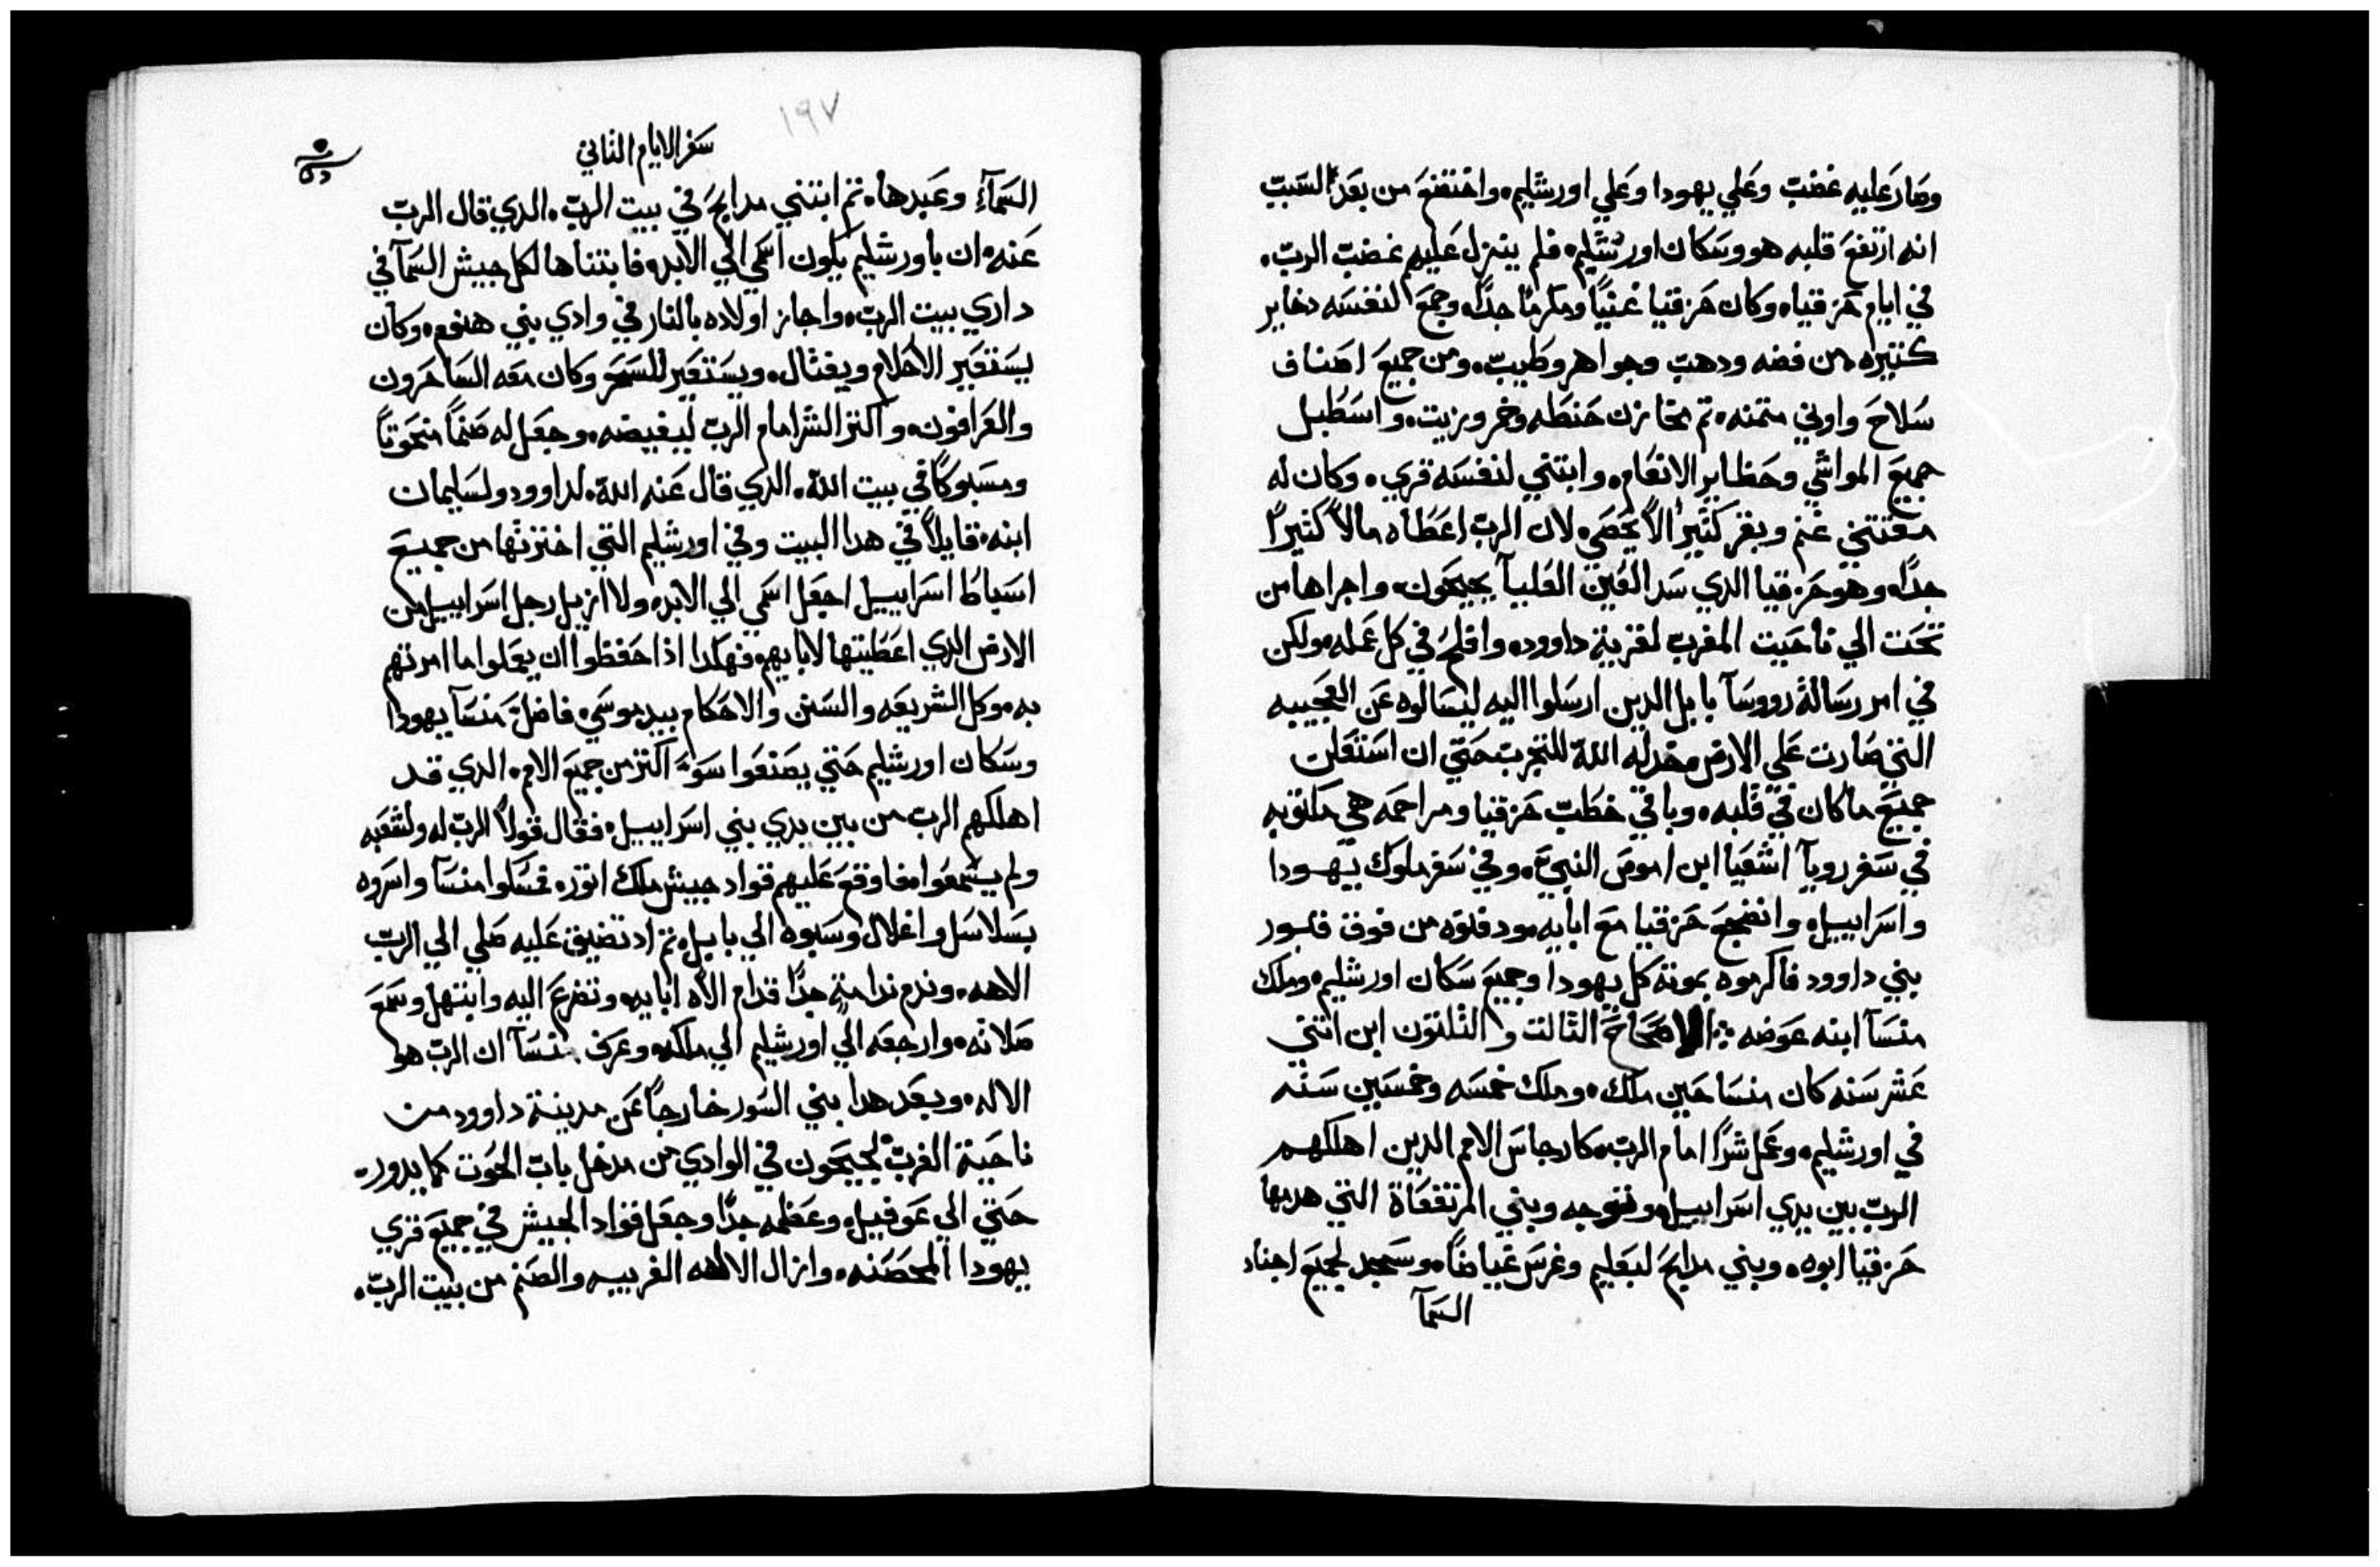 وصار عليه غضب وعلي يهودا وعلي اورشليم، واختضع من بعد السبب
انه ارتفع قلبه هو وسكان اورشليم، فلم ينزل عليهم غضب الرب،
في ايام حزقيا، وكان حزقيا غنيًا ومكرمًا جدًا، وجمع لنفسه دخاير
كتيره من فضه ودهب وجواهر وطيب، ومن جميع اصناف
سلاح واوني متمنه، تم مخازن حنطه وخمر وزيت، واسطبل
جميع المواشي وحظاير الانعام، وابتني لنفسه قري، وكان له
مقتني غنم وبقر كتيرًا لا يحصي، لان الرب اعطاه مالاً كتيرًا
جدًا، وهو حزقيا الدي سد العين العليآ بجيحون، واجراها من
تحت الي ناحيت المغرب لقرية داوود، وافلح في كل عمله، ولكن
في امر رسالة رووسآ بابل الدين ارسلوا اليه ليسالوه عن العجيبه
التي صارت علي الارض، خدله الله للتجربت حتي ان استعلن
جميع ما كان في قلبه، وباقي خطب حزقيا ومراحمه هي مكتوبه
في سفر رويآ اشعيا ابن اموص النبي، وفي سفر ملوك يهودا
واسراييل، وانضجع حزقيا مع ابايه، ودفنوه من فوق قبور
بني داوود فاكرموه بموته كل يهودا وجميع سكان اورشليم، وملك
منسآ ابنه عوضه ؛ الاصحاح التالت والتلتون ابن اتني
عشر سنه كان منسا حين ملك، وملك خمسه وخمسين سنه
في اورشليم، وعمل شرًا امام الرب، كارجاس الامم الدين اهلكهم
الرب بين يدي اسراييل، وتوجه وبني المرتفعاة التي هدمها
حزقيا ابوه، وبني مدابح لبعليم وغرس غياضًا، وسجد لجميع اجناد
السمآ
١٩٧
سفر الايام التاني
السمآءِ وعبدها، تم ابتني مدابح في بيت الرب، الدي قال الرب
عنه، ان باورشليم يكون اسمي الي الابد، فابتناها لكل جيش السمآ في
داري بيت الرب، واجاز اولاده بالنار في وادي بني هنوم، وكان
يستقير الاحلام ويفتال، ويستقير للسحر وكان معه الساحرون
والعرافون، واكتر الشر امام الرب ليغيضه، وجعل له صنمًا منحوتًا
ومسبوكًا في بيت الله، الدي قال عنه الله، لداوود ولسليمان
ابنه، قايلاً في هدا البيت وفي اورشليم التي اخترتها من جميع
اسباط اسراييل اجعل اسمي الي الابد، ولا ازيل رجل اسراييل من
الارض الدي اعطيتها لابايهم، فهكدا اذا حفظوا ان يعملوا ما امرتهم
به، وكل الشريعه والسنن والاحكام بيد موسي، فاضل منسآ يهودا
وسكان اورشليم حتي يصنعوا سوء اكتر من جميع الامم، الدي قد
اهلكهم الرب من بين يدي بني اسراييل، فقال قولاً الرب له ولشعبه
ولم يسمعوا، فاوقع عليهم قواد جيش ملك اتور، فمسكوا منسآ واسروه
بسلاسل واغلال وسبوه الي بابل، تم اد تضيق عليه صلي الي الرب
الاهه، وندم ندامةٍ جدًا قدام الاه ابايه، وتضرع اليه وابتهل وسمع
صلاته، وارجعه الي اورشليم الي ملكه، وعرف منسآ ان الرب هو
الاله، وبعد هدا بني السور خارجًا عن مدينة داوود من
ناحية الغرب لجيحون في الوادي من مدخل باب الحوت كما يدور،
حتي الي عوفيل، وعظمه جدًا وجعل قواد الجيش في جميع قري
يهودا المحصنه، وازال الالهه الغريبه والصنم من بيت الرب،